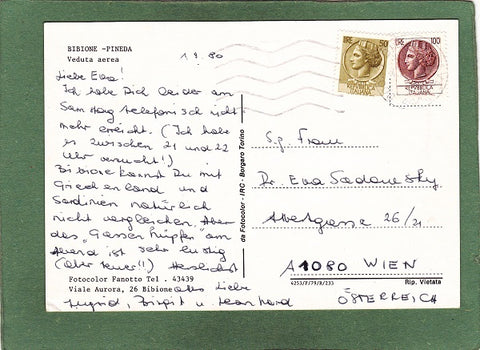 BIBIONE - PINEDA
Veduta aerea
1.9.80
Liebe Eva!
Ich habe Dich leider am
Samstag telefonisch nicht
mehr erreicht. (Ich habe
es zwischen 21 und 22
Uhr versucht!)
Bibione kannst Du mit
Griechenland und
Sardinien natürlich
nicht vergleichen. Aber
das "Gassenhüpfen" am
Abend ist sehr lustig
(aber teuer!!) Herzlichst
Fotocolor Fanotto Tel. 43439
Viale Aurora, 26 Bibione
alles Liebe
Ingrid, Birgit u. Leonhard
da Fotocolor - IRC - Borgaro Torino
LIRE 50
LIRE 100
S.g. Frau
Dr. Eva Sadovsky
26/21
A 1080 WIEN
4253/F/79/B/233
Rip. Vietata
ÖSTERREICH